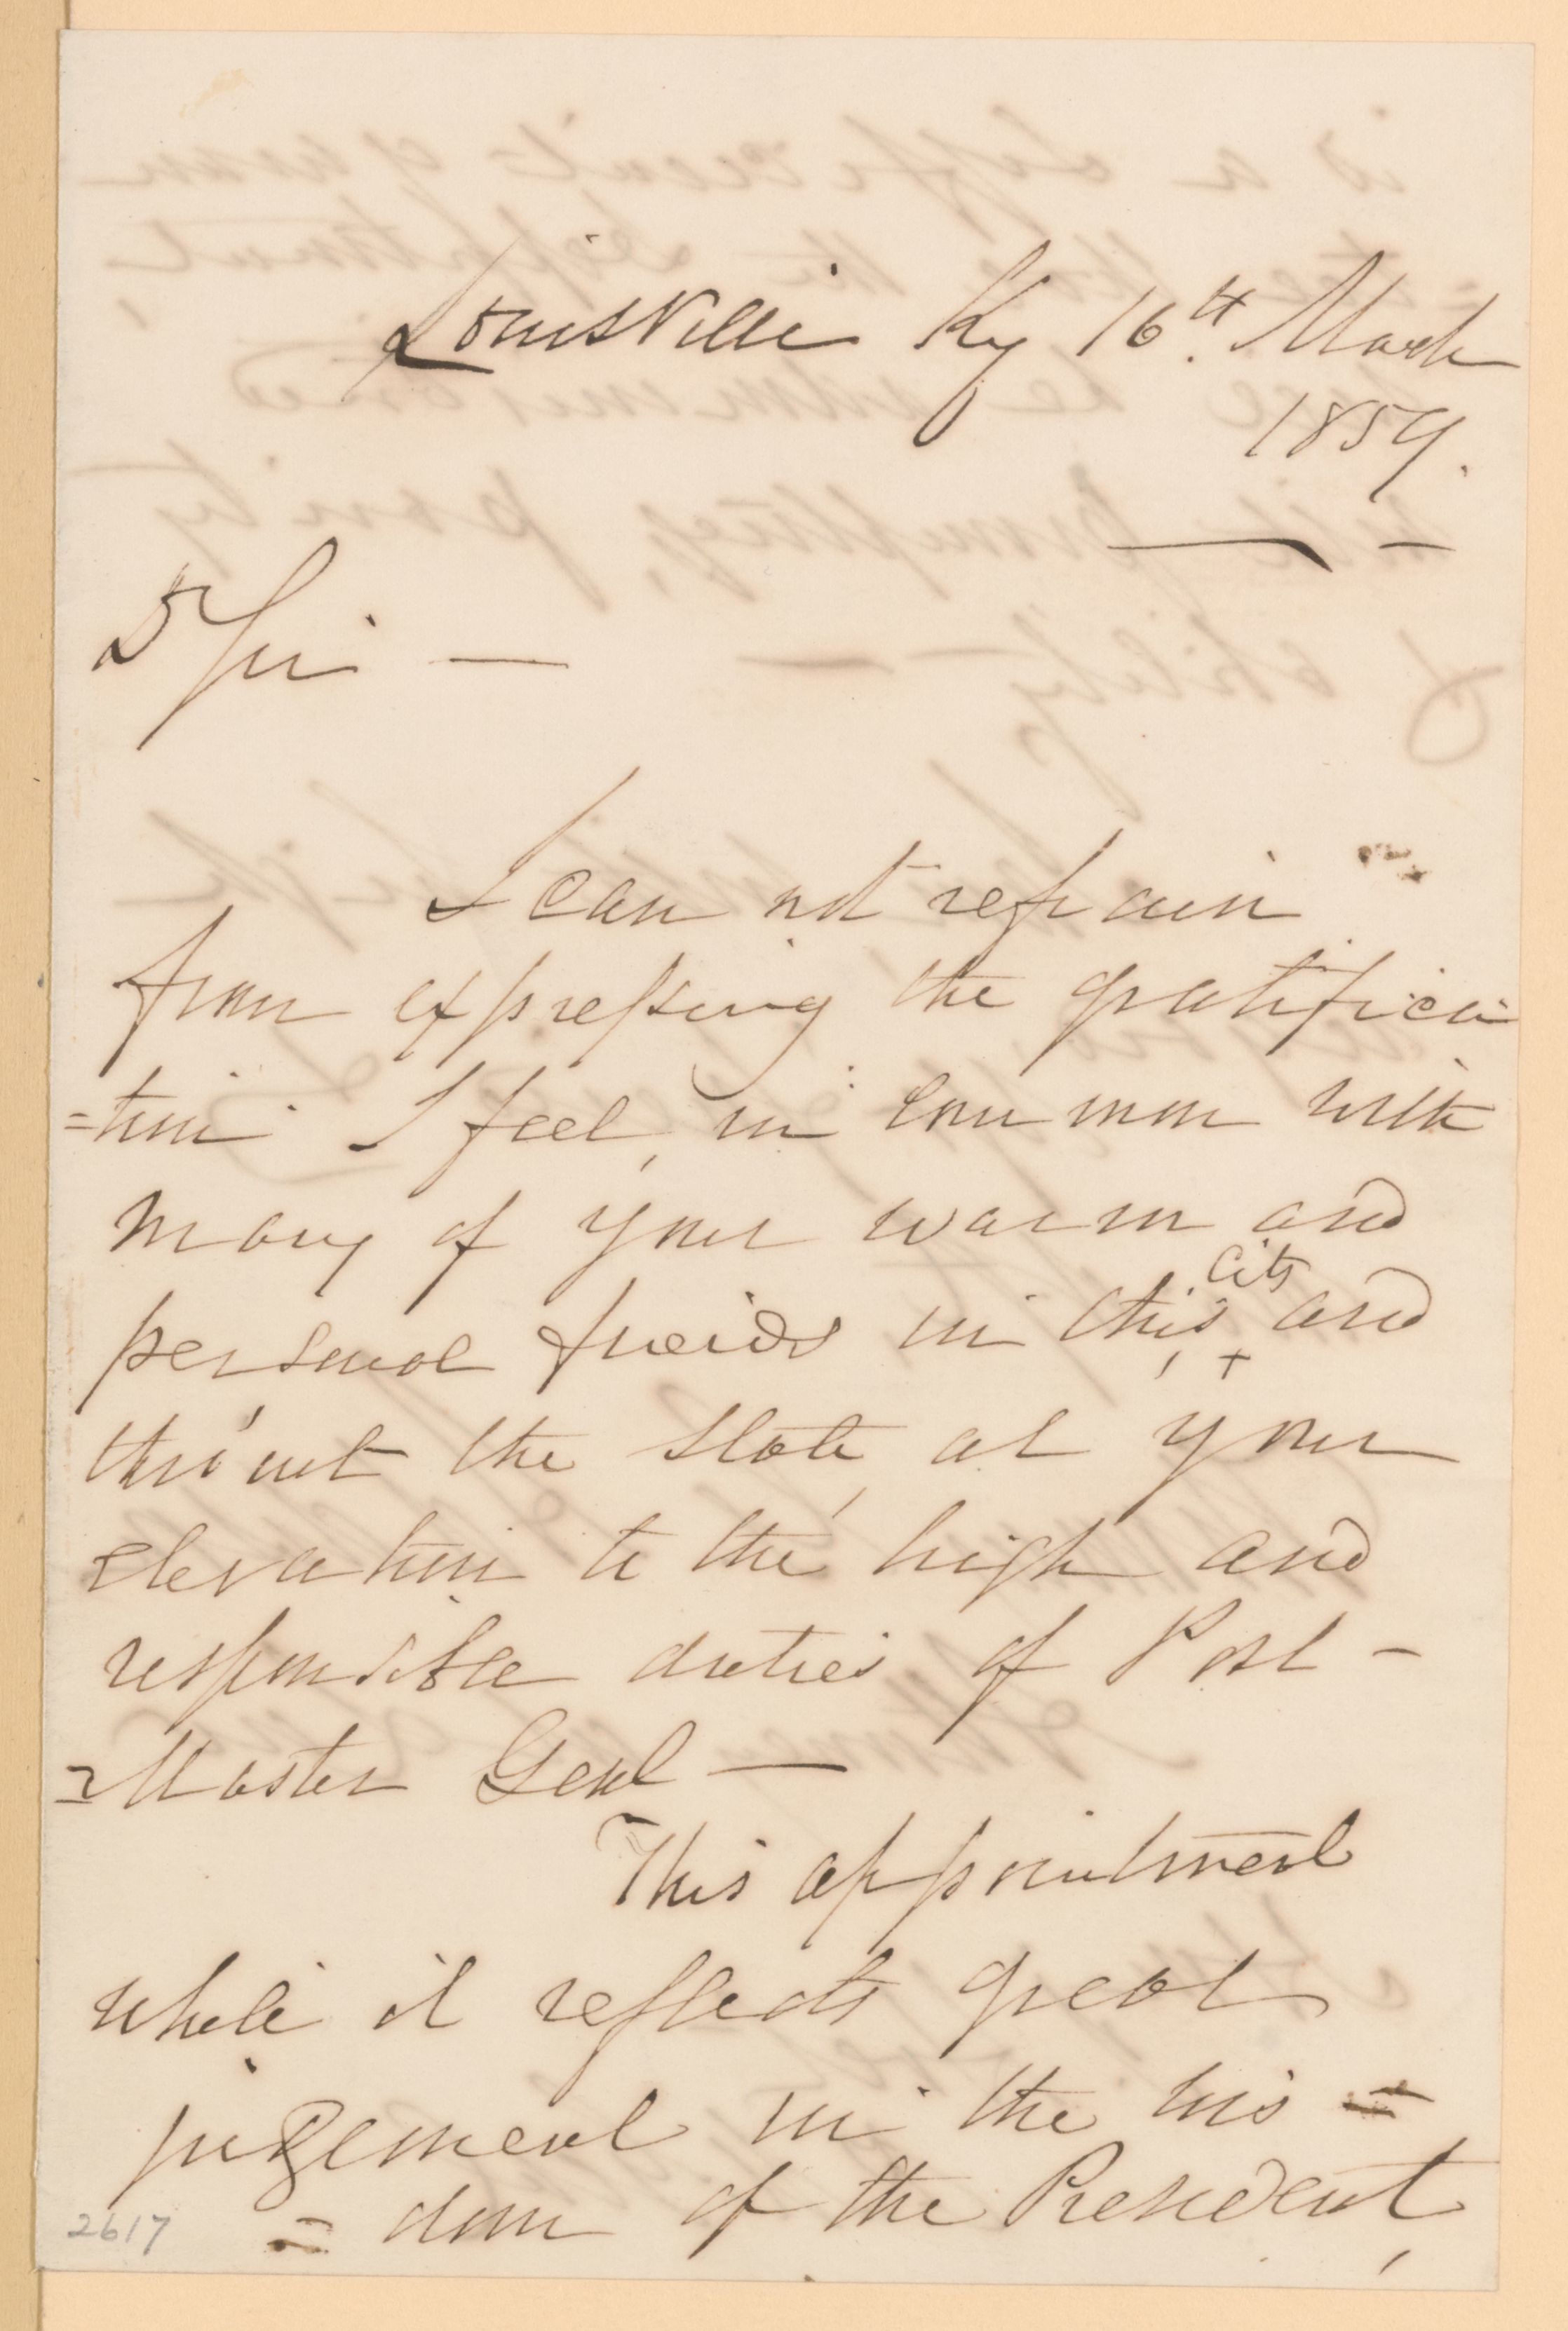 Louisville Ky 16th. March
1859.
Dr Sir —
I can not refrain
from expressing the gratifica
=tion I feel, in common with
many of your warm and
personal friends in this, city and
thro'out the State, at your
elevation to the high and
responsible duties of Post -
=Master Genl —
This appointment
while it reflects great
judgement in the wis =
= dom of the President,
2617